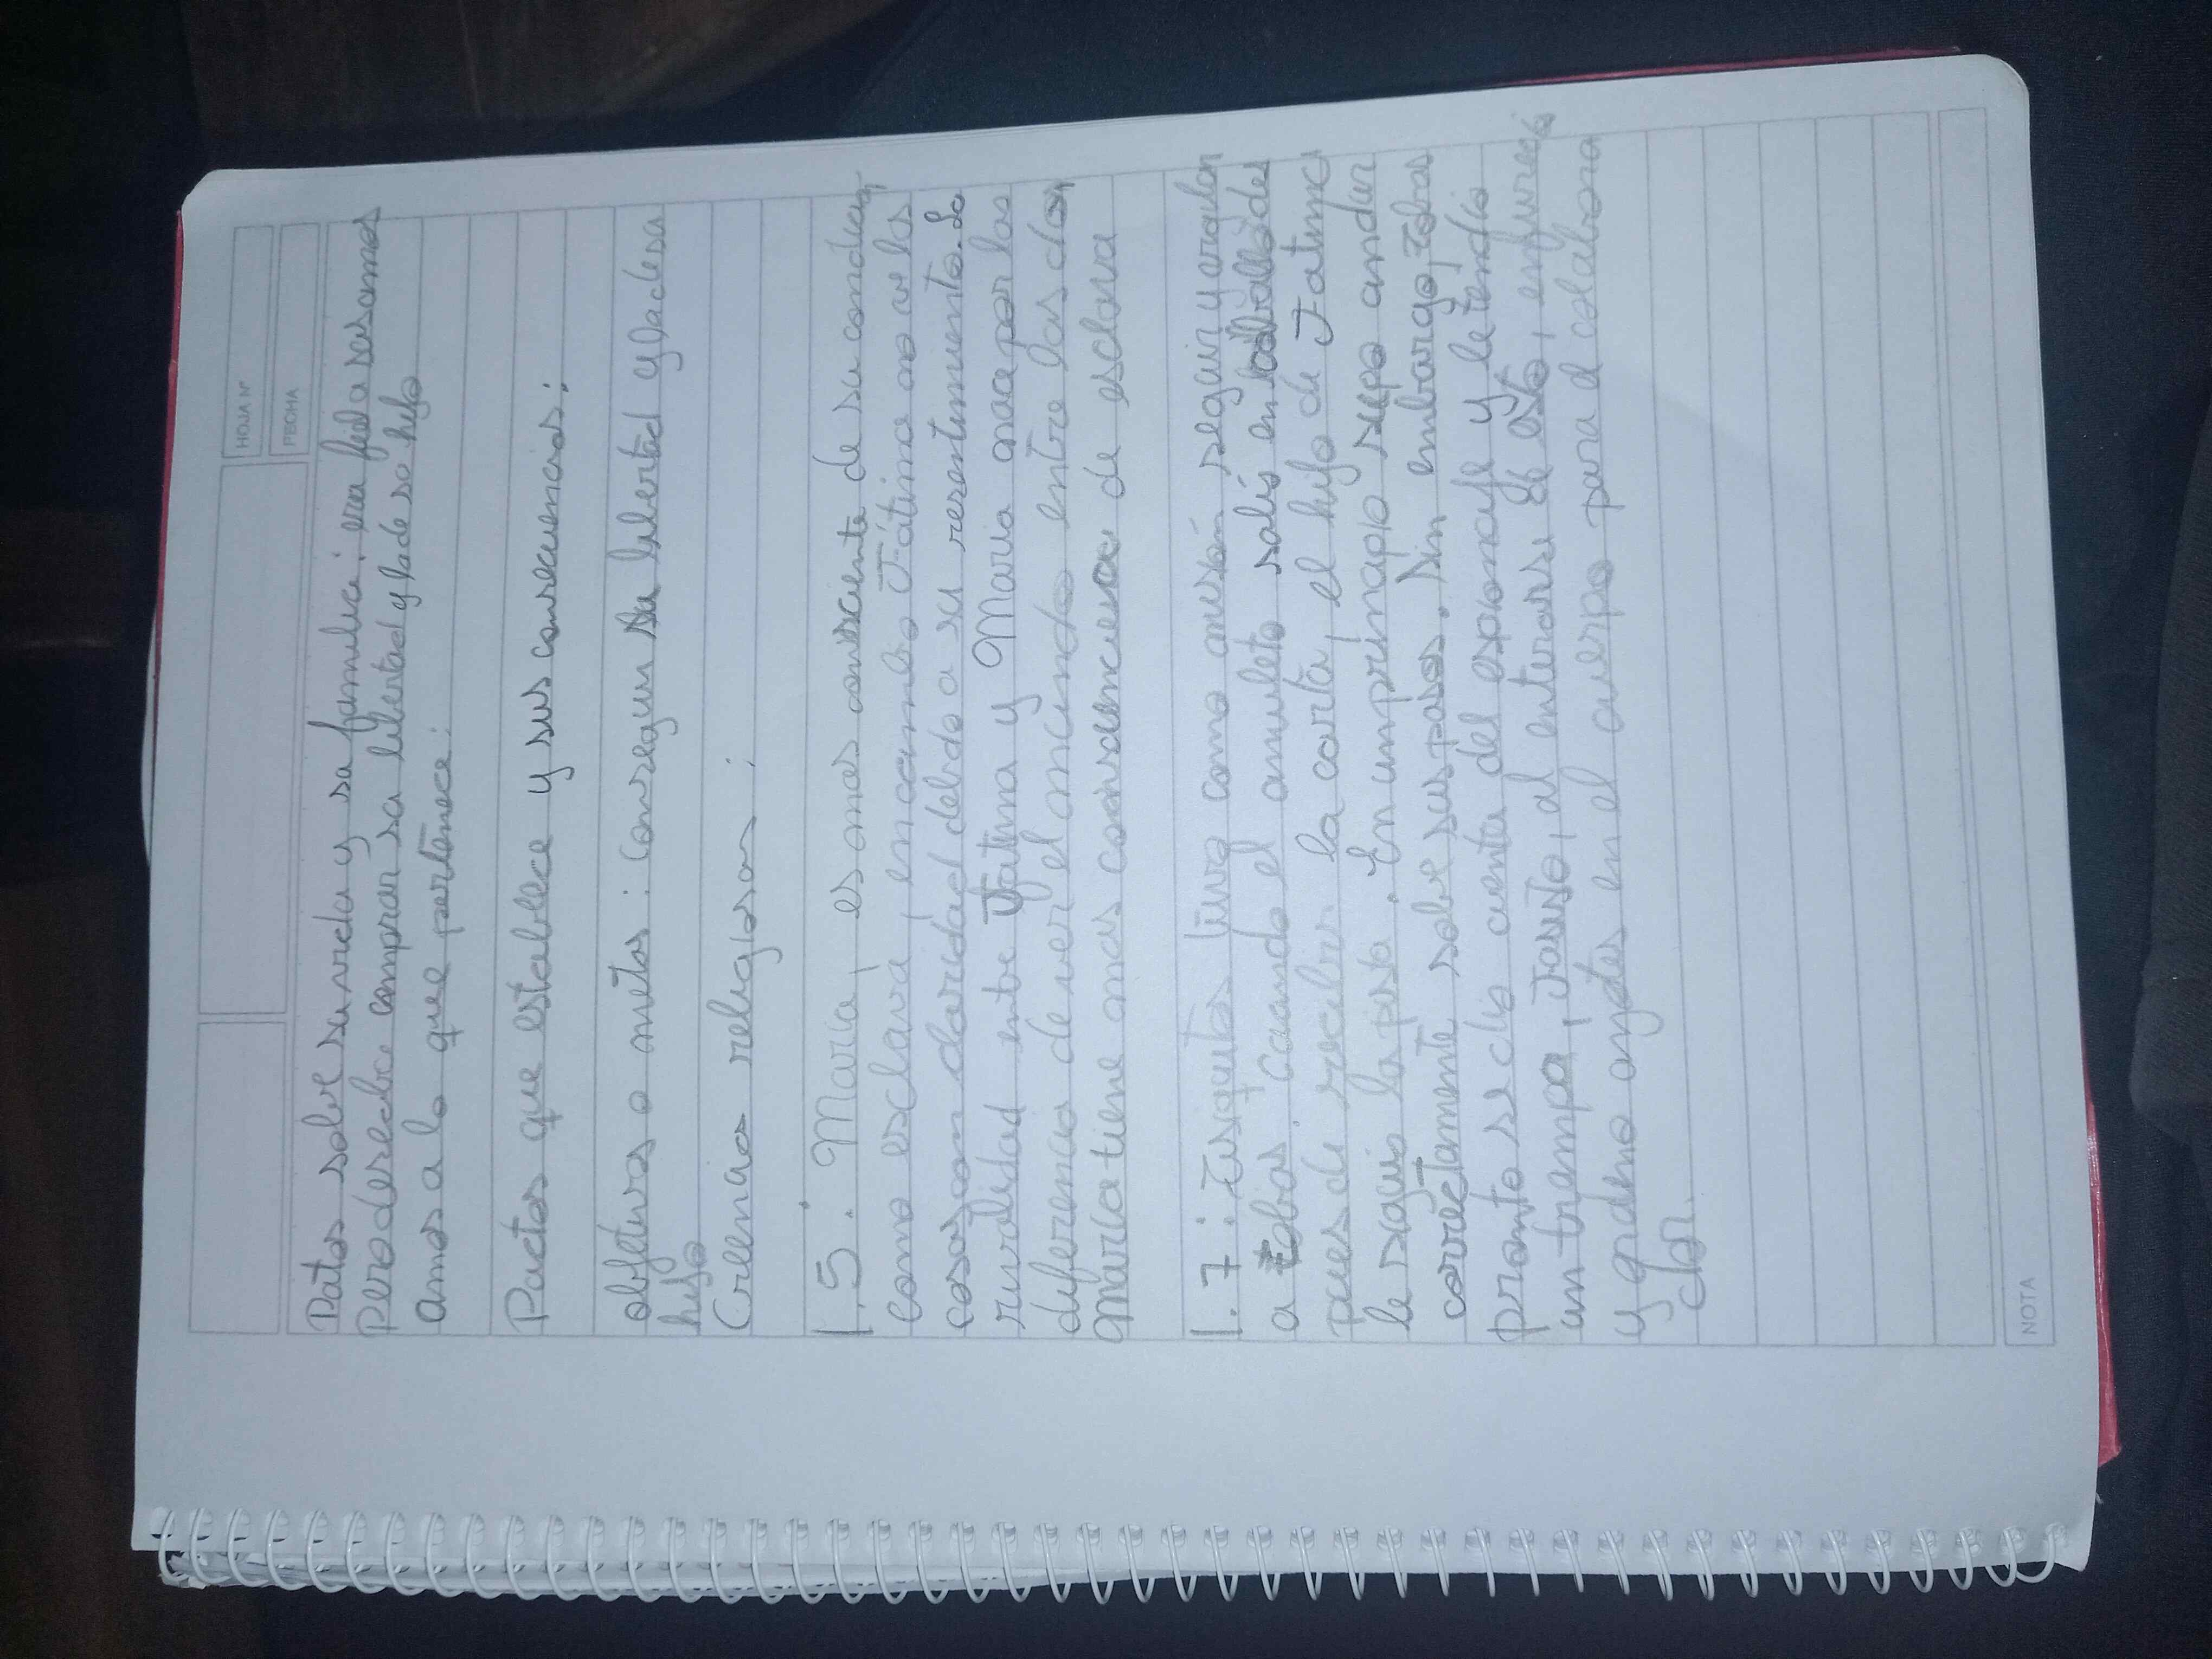 HOJA N°
FECHA
Datos sobre su vida y su familia: era fiel a sus amos
Pero deseaba comprar su libertad y la de su hijo
Amos a lo que pertenece:
Pactos que establece y sus consecuencias:
objetivos o metas: conseguir su libertad y la de su
hijo
Creencias religiosas:
1.5: Maria, es mas consciente de su condicion
como esclava, en cambio Fátima no ve las
cosas con claridad debido a su resentimiento. La
rivalidad entre Fatima y Maria nace por la
diferencia de ver el mundo entre las dos,
Maria tiene mas consciencia de esclava
1.7: Tusiquitos tuvo como misión seguir y
a tobias. Cuando el amuleto salis en caballo des
pues de recibir la carta, el hijo de Fatima
le siguio la pista. En un principio supo andar
correctamente sobre sus pasos. Sin embargo, Tobias
pronto se dio cuenta del espionaje y le tendio
un trampa, al enterarse de esto, enfurecio
y ordeno azotes en el cuerpo para el colabora
dor.
NOTA